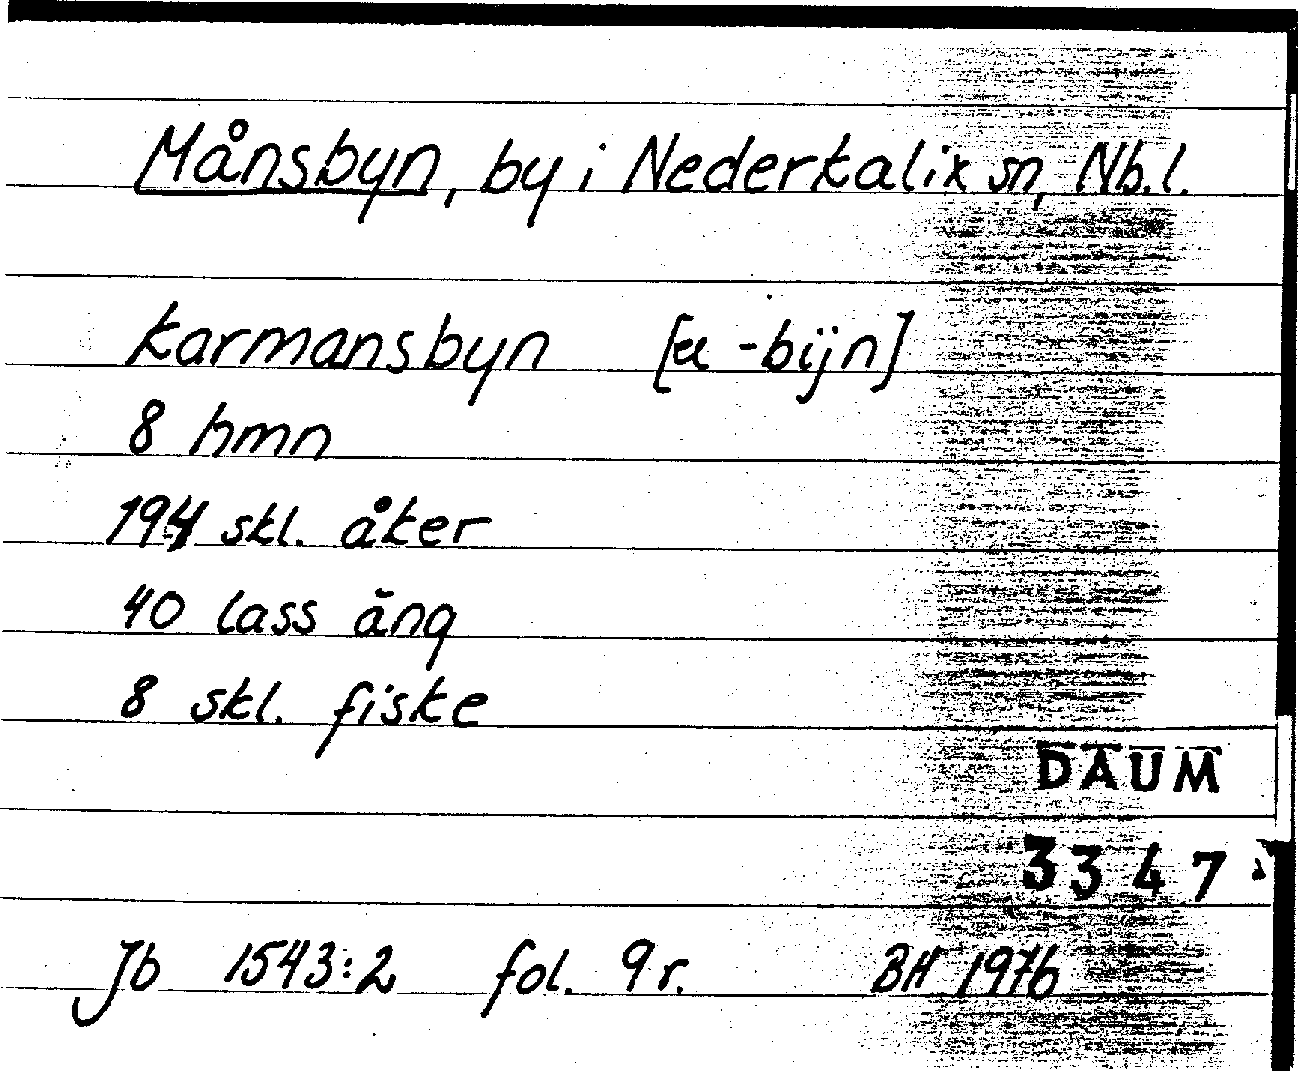 Månsbyn, by i Nederkalix sn, Nb.l.
Karmansbyn [æ -bijn]
8 hmn
194 skl. åker
40 lass äng
8 skl. fiske
DAUM
3347
Jb 1543:2 fol. 9 r. BH 1976